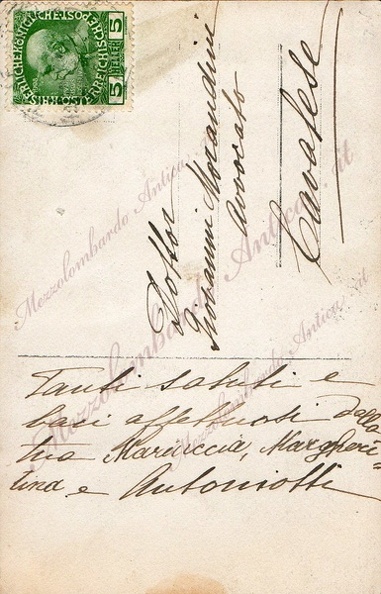 KAISERLICHE KÖNIGLICHE ÖSTERREICHISCHE POST
5 HELLER 5
Dottor
Giovanni Morandini
Avvocato
Cavalese
Tanti saluti e
baci affettuosi dalla
tua Mariuccia, Margheri-
tina e Antoniotti
Mezzolombardo Antica.it
Mezzolombardo Antica.it
Mezzolombardo Antica.it